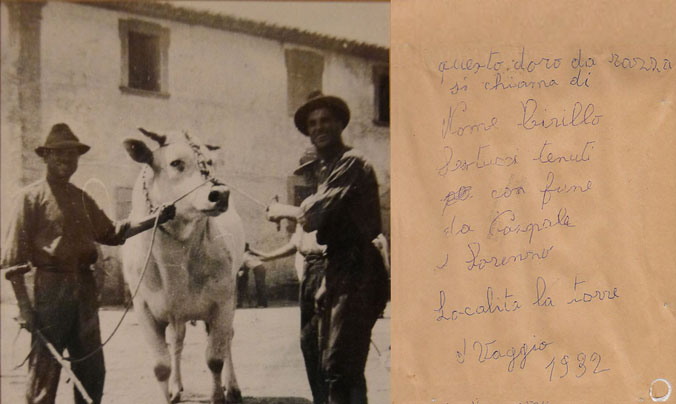 questo, doro da razza
si chiama di
Nome Cirillo
Festucci tenuti
con fune
da Pasquale
e Lorenno
Localita la torre
Vaggio
1932